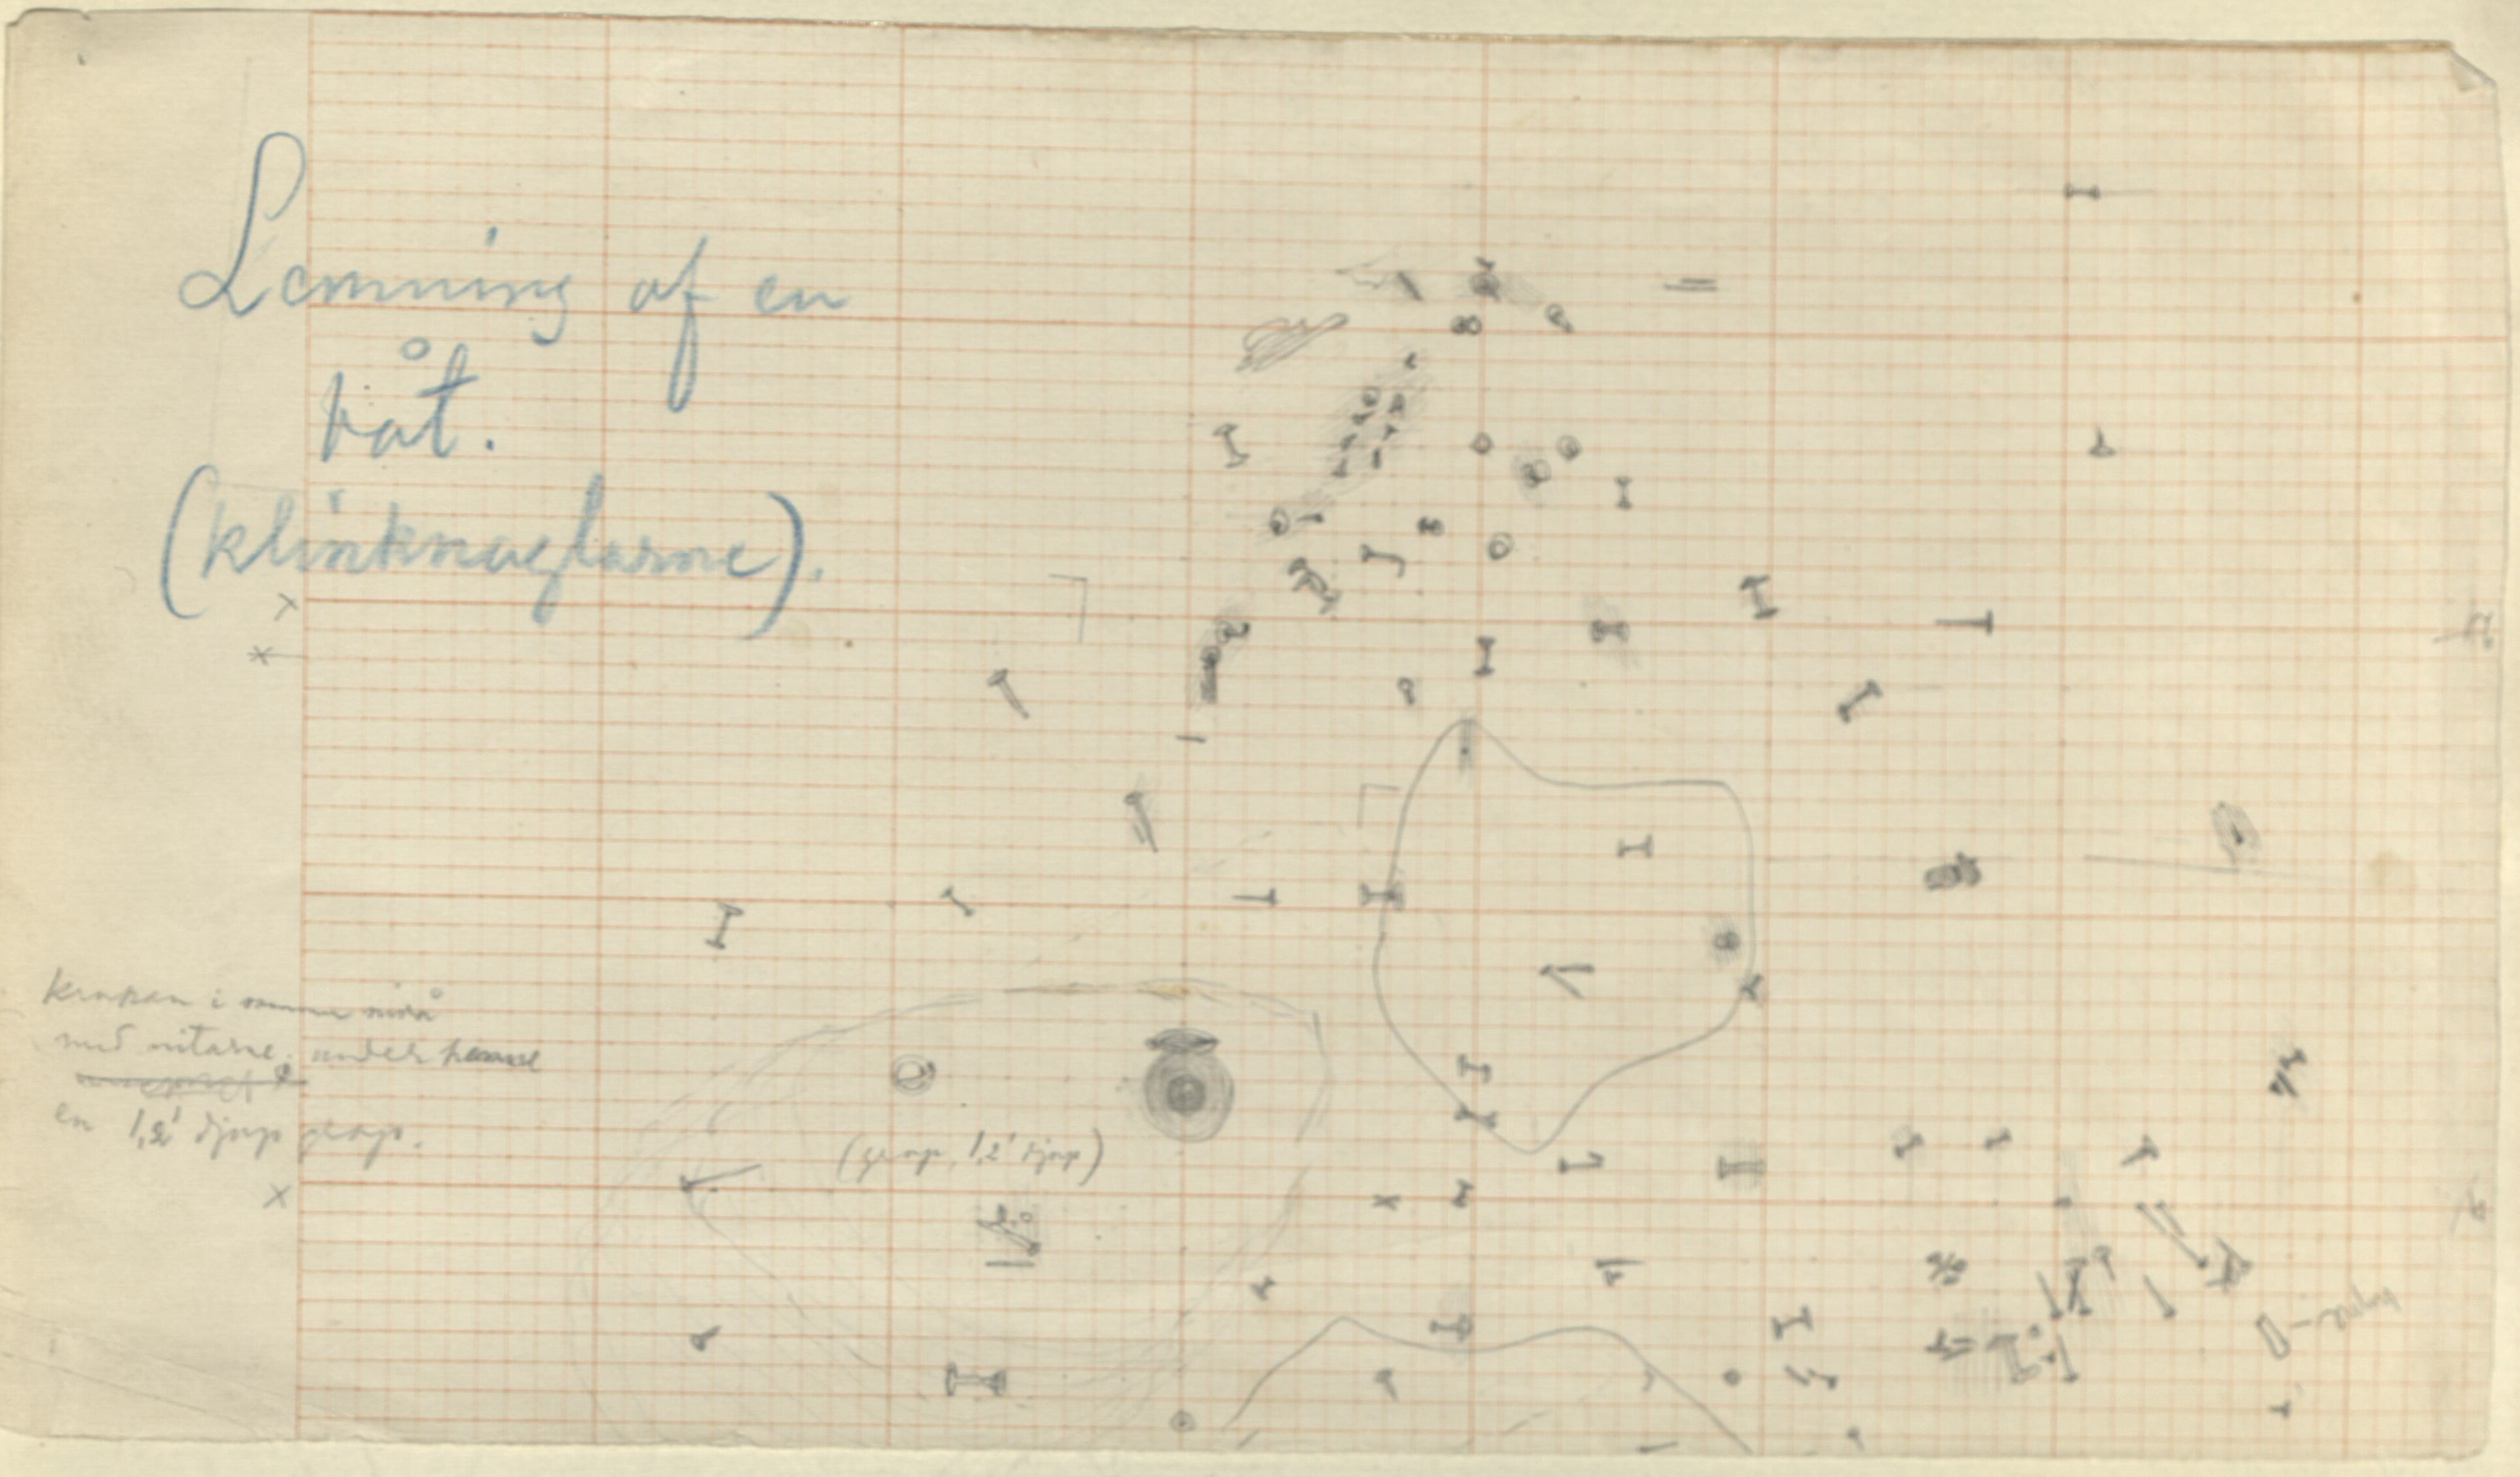 Lemning af en
båt.
(klinknaglarne).
krukan i samma nivå
med nitarne. under henne
en 1,2' djup grop.
(grop, 1,2' djup)